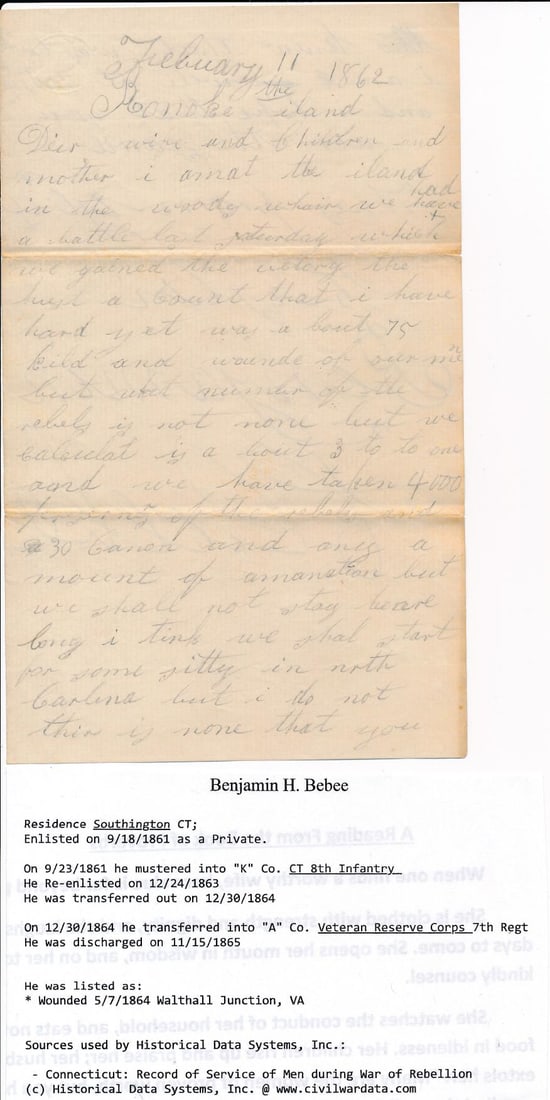 Febuary 11 1862
the
Ronoke iland
Dier wife and Children and
mother i amat the iland
had
in the woods whair we have
a battle last yesterday which
we gained the victory the
best a Count that i have
hard yet was a bout 75
kild and wounde of our me
but what number of the
rebels is not none but we
Calculat is a bout 3 to to one
and we have taken 4000
of the rebels and
30 Canon and any a
mount of amanetion but
we shall not stay heare
long i tink we shal start
for some sitty in nrth
Carlina but i do not
thir is none that you
Benjamin H. Bebee
Residence Southington CT;
Enlisted on 9/18/1861 as a Private.
On 9/23/1861 he mustered into "K" Co. CT 8th Infantry
He Re-enlisted on 12/24/1863
He was transferred out on 12/30/1864
On 12/30/1864 he transferred into "A" Co. Veteran Reserve Corps 7th Regt
He was discharged on 11/15/1865
He was listed as:
* Wounded 5/7/1864 Walthall Junction, VA
Sources used by Historical Data Systems, Inc.:
- Connecticut: Record of Service of Men during War of Rebellion
(c) Historical Data Systems, Inc. @ www.civilwardata.com